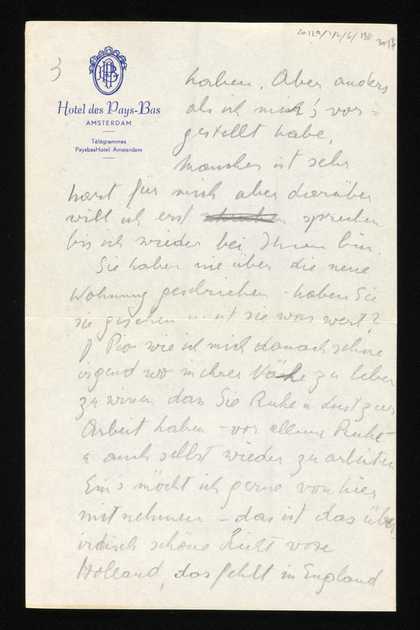 3
Hotel des Pays-Bas
AMSTERDAM
Télégrammes
PaysbasHotel Amsterdam
haben. Aber anders
als ich mich's vor=
gestellt habe,
manches ist sehr
hart für mich aber darüber
will ich erst sprechen
bis ich wieder bei Ihnen bin.
Sie haben nie über die neue
Wohnung geschrieben - haben Sie
sie gesehen u ist sie was wert?
wie ich mich danach sehne
irgend wo in Ihrer Nähe zu leben
zu wissen dass Sie Ruhe u Lust zur
Arbeit haben - vor allem Ruhe -
u auch selbst wieder zu arbeiten
Eins möcht ich gerne von hier
mitnehmen - das ist das über
irdisch schöne Licht von
Holland, das fehlt in England